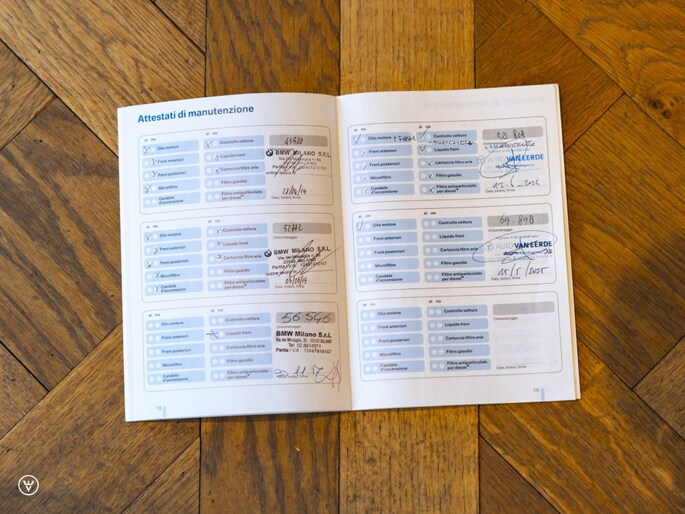 Attestati di manutenzione
sì no
sì no
Olio motore
Controllo vettura
Freni anteriori
Liquido freni
Freni posteriori
Cartuccia filtro aria
Microfiltro
Filtro gasolio
Candele d'accensione
Filtro antiparticolato per diesel
BMW MILANO S.R.L.
Data, timbro, firma
sì no
sì no
Olio motore
Controllo vettura
Freni anteriori
Liquido freni
Freni posteriori
Cartuccia filtro aria
Microfiltro
Filtro gasolio
Candele d'accensione
Filtro antiparticolato per diesel
BMW MILANO S.R.L.
Data, timbro, firma
sì no
sì no
Olio motore
Controllo vettura
Freni anteriori
Liquido freni
Freni posteriori
Cartuccia filtro aria
Microfiltro
Filtro gasolio
Candele d'accensione
Filtro antiparticolato per diesel
56546
Chilometraggio
BMW Milano S.r.l.
20.11.17
sì no
sì no
Olio motore
Controllo vettura
Freni anteriori
Liquido freni
Freni posteriori
Cartuccia filtro aria
Microfiltro
Filtro gasolio
Candele d'accensione
Filtro antiparticolato per diesel
AUTO VAN EERDE
Data, timbro, firma
sì no
sì no
Olio motore
Controllo vettura
Freni anteriori
Liquido freni
Freni posteriori
Cartuccia filtro aria
Microfiltro
Filtro gasolio
Candele d'accensione
Filtro antiparticolato per diesel
69.890
Chilometraggio
AUTO VAN EERDE
15/5/2025
Data, timbro, firma
sì no
sì no
Olio motore
Controllo vettura
Freni anteriori
Liquido freni
Freni posteriori
Cartuccia filtro aria
Microfiltro
Filtro gasolio
Candele d'accensione
Filtro antiparticolato per diesel
Chilometraggio
Data, timbro, firma